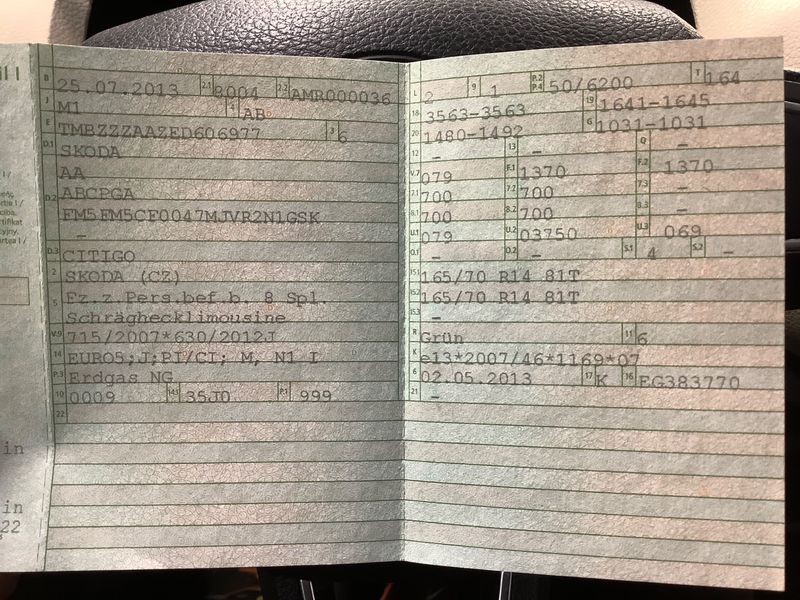 B 25.07.2013 2.1 8004 2.2 AMR000036
J M1 4 AB
E TMBZZZAAZED606977 3 6
D.1 SKODA
AA
D.2 ABCPGA
FM5FM5CF0047MJVR2N1GSK
-
D.3 CITIGO
2 SKODA (CZ)
5 Fz.z.Pers.bef.b. 8 Spl.
Schräghecklimousine
V.9 715/2007*630/2012J
14 EURO5;J;PI/CI; M, N1 I
P.3 Erdgas NG
10 0009 14.1 35J0 P.1 999
22
L 2 9 1 P.2 P.4 50/6200 T 164
18 3563-3563 19 1641-1645
20 1480-1492 G 1031-1031
12 - 13 - Q -
V.7 079 F.1 1370 F.2 1370
7.1 700 7.2 700 7.3 -
8.1 700 8.2 700 8.3 -
U.1 079 U.2 03750 U.3 069
O.1 - O.2 - S.1 4 S.2 -
15.1 165/70 R14 81T
15.2 165/70 R14 81T
15.3 -
R Grün 11 6
K e13*2007/46*1169*07
6 02.05.2013 17 K 16 EG383770
21 -
in
in
22